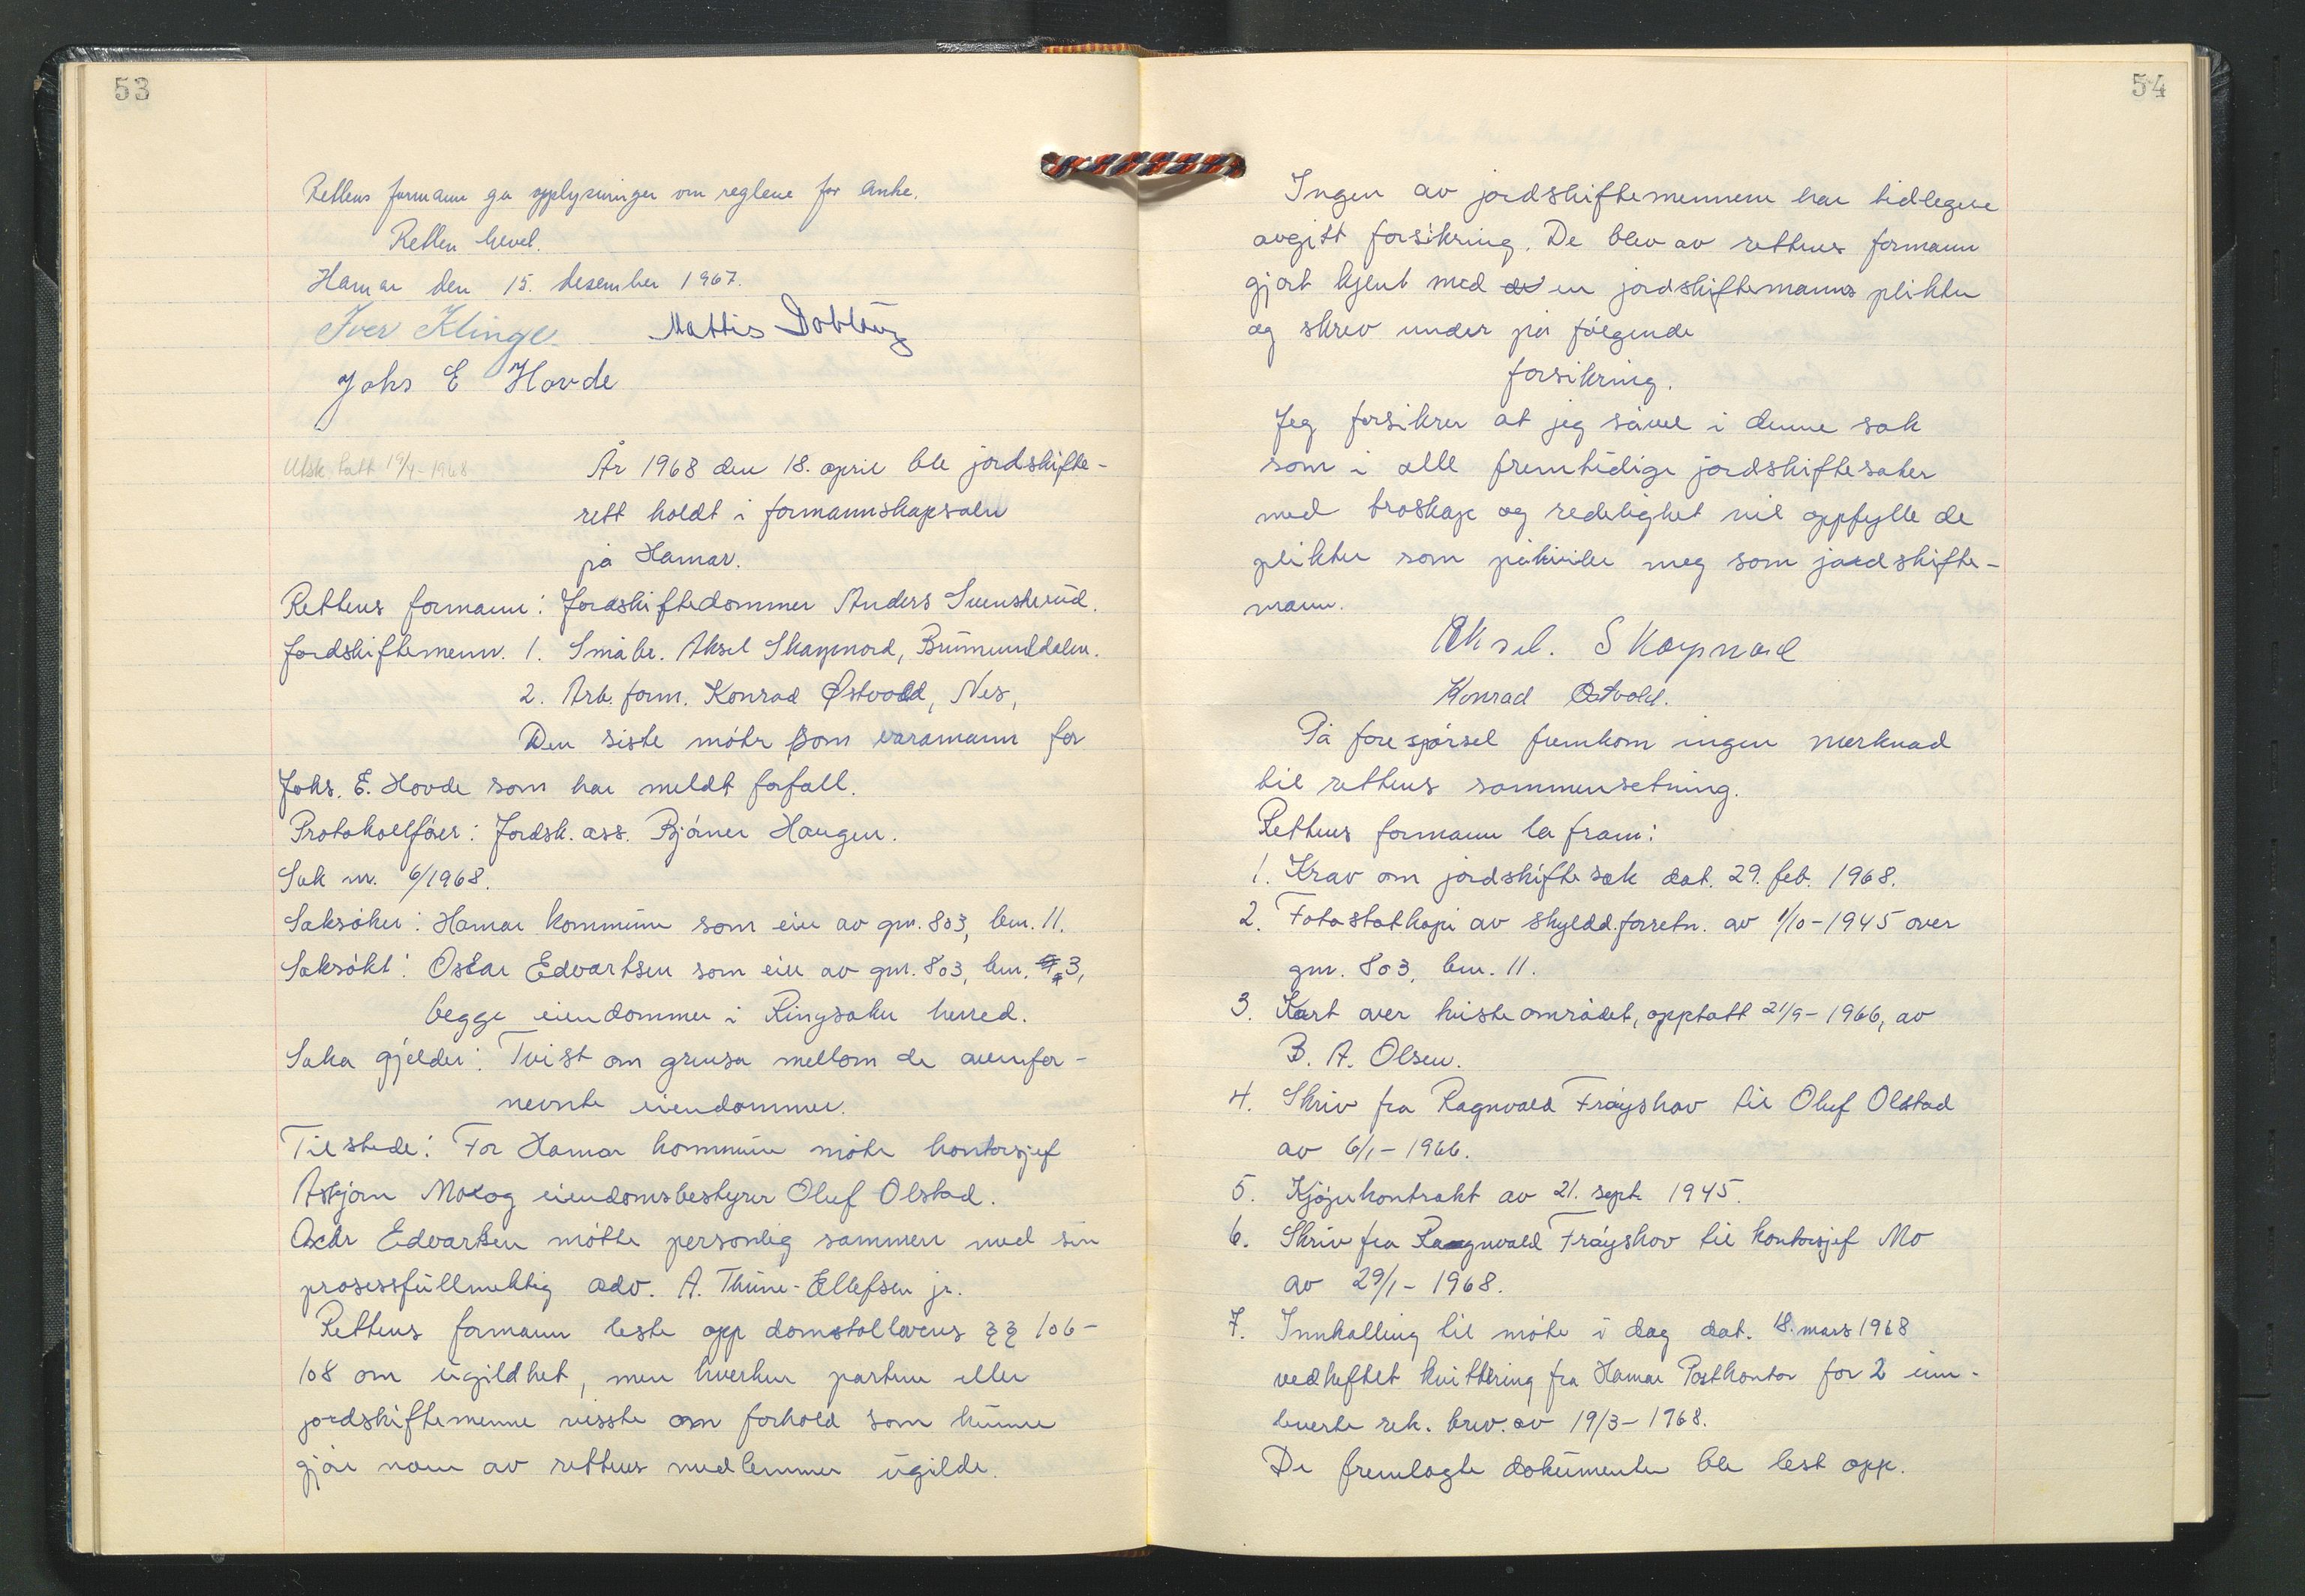 53
Rettens formann ga opplysninger om reglene for anke.
Retten hevet.
Hamar den 15. desember 1967.
Iver Klinge Mattis Dobloug
Johs E Hovde
Utsk. tatt 19/4-1968
År 1968 den 18. april ble jordskifte-
rett holdt i formannskapsalen
på Hamar.
Rettens formann: Jordskiftedommer Anders Svenskerud.
Jordskiftemenn. 1. Småbr. Aksel Skaynord, Brumunddalen.
2. Arb. form. Konrad Østvold, Nes,
Den siste møter som varamann for
Johs. E. Hovde som har meldt forfall.
Protokollfører: Jordsk. ass. Bjørner Haugen.
Sak nr. 6/1968.
Saksøker: Hamar kommune som eier av gnr. 803, bnr. 11.
Saksøkt: Oskar Edvartsen som eier av gnr. 803, bnr. 3,
begge eiendommer i Ringsaker herred.
Saka gjelder: Tvist om grensa mellom de ovenfor-
nevnte eiendommer.
Tilstede: For Hamar kommune møtte kontorsjef
Asbjørn Mo og eiendomsbestyrer Oluf Olstad.
Oskar Edvartsen møtte personlig sammen med sin
prosessfullmektig adv. A. Thune-Ellefsen jr.
Rettens formann leste opp domstollovens §§ 106-
108 om ugildhet, men hverken partene eller
jordskiftemenne visste om forhold som kunne
gjøre noen av rettens medlemmer ugilde.
54
Ingen av jordskiftemennene har tidlegere
avgitt forsikring. De blev av rettens formann
gjort kjent med de en jordskiftemanns plikter
og skrev under på følgende
forsikring.
Jeg forsikrer at jeg såvel i denne sak
som i alle fremtidige jordskiftesaker
med troskap og redelighet vil oppfylle de
plikter som påhviler meg som jordskifte-
mann.
Aksel. Skaynord
Konrad Østvold.
På forespørsel fremkom ingen merknad
til rettens sammensetning.
Rettens formann la fram:
1. Krav om jordskiftesak dat. 29. feb. 1968.
2. Fotostatkopi av skyldd.forretn. av 1/10-1945 over
gnr. 803, bnr. 11.
3. Kart over tvisteområdet, opptatt 21/9-1966, av
B. A. Olsen.
4. Skriv fra Ragnvald Frøyshov til Oluf Olstad
av 6/1-1966.
5. Kjøpekontrakt av 21. sept. 1945.
6. Skriv fra Ragnvald Frøyshov til kontorsjef Mo
av 29/1-1968.
7. Innkalling til møte i dag dat. 18. mars 1968
vedheftet kvittering fra Hamar Postkontor for 2 inn-
leverte rek. brev. av 19/3-1968.
De fremlagte dokumenter ble lest opp.